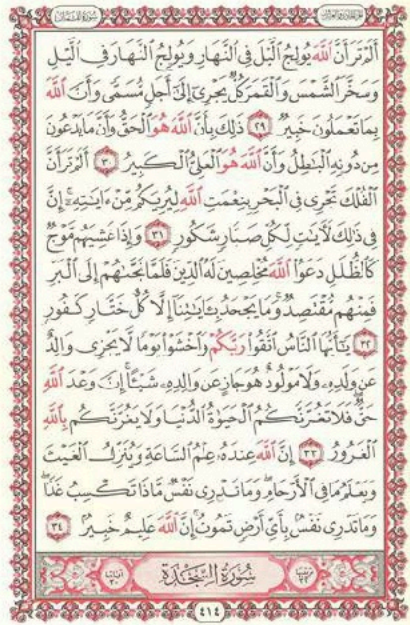 سُورَةُ لُقْمَانَ
الجُزْءُ الحَادِي وَالعِشْرُونَ
أَلَمْ تَرَ أَنَّ اللَّهَ يُولِجُ الَّيْلَ فِي النَّهَارِ وَيُولِجُ النَّهَارَ فِي الَّيْلِ
وَسَخَّرَ الشَّمْسَ وَالْقَمَرَ كُلٌّ يَجْرِي إِلَىٰ أَجَلٍ مُسَمًّى وَأَنَّ اللَّهَ
بِمَا تَعْمَلُونَ خَبِيرٌ ٢٩ ذَٰلِكَ بِأَنَّ اللَّهَ هُوَ الْحَقُّ وَأَنَّ مَا يَدْعُونَ
مِن دُونِهِ الْبَٰطِلُ وَأَنَّ اللَّهَ هُوَ الْعَلِيُّ الْكَبِيرُ ٣٠ أَلَمْ تَرَ أَنَّ
الْفُلْكَ تَجْرِي فِي الْبَحْرِ بِنِعْمَتِ اللَّهِ لِيُرِيَكُم مِّنْ ءَايَٰتِهِ إِنَّ
فِي ذَٰلِكَ لَءَايَٰتٍ لِّكُلِّ صَبَّارٍ شَكُورٍ ٣١ وَإِذَا غَشِيَهُم مَّوْجٌ
كَالظُّلَلِ دَعَوُا اللَّهَ مُخْلِصِينَ لَهُ الدِّينَ فَلَمَّا نَجَّىٰهُمْ إِلَى الْبَرِّ
فَمِنْهُم مُّقْتَصِدٌ وَمَا يَجْحَدُ بِـَٔايَٰتِنَا إِلَّا كُلُّ خَتَّارٍ كَفُورٍ
٣٢ يَٰٓأَيُّهَا النَّاسُ اتَّقُوا رَبَّكُمْ وَاخْشَوْا يَوْمًا لَّا يَجْزِي وَالِدٌ
عَن وَلَدِهِ وَلَا مَوْلُودٌ هُوَ جَازٍ عَن وَالِدِهِ شَيْـًٔا إِنَّ وَعْدَ اللَّهِ
حَقٌّ فَلَا تَغُرَّنَّكُمُ الْحَيَوٰةُ الدُّنْيَا وَلَا يَغُرَّنَّكُم بِاللَّهِ
الْغَرُورُ ٣٣ إِنَّ اللَّهَ عِندَهُ عِلْمُ السَّاعَةِ وَيُنَزِّلُ الْغَيْثَ
وَيَعْلَمُ مَا فِي الْأَرْحَامِ وَمَا تَدْرِي نَفْسٌ مَّاذَا تَكْسِبُ غَدًا
وَمَا تَدْرِي نَفْسٌ بِأَيِّ أَرْضٍ تَمُوتُ إِنَّ اللَّهَ عَلِيمٌ خَبِيرٌ ٣٤
سُورَةُ السَّجْدَةِ
آيَاتُهَا ٣٠
٤١٤